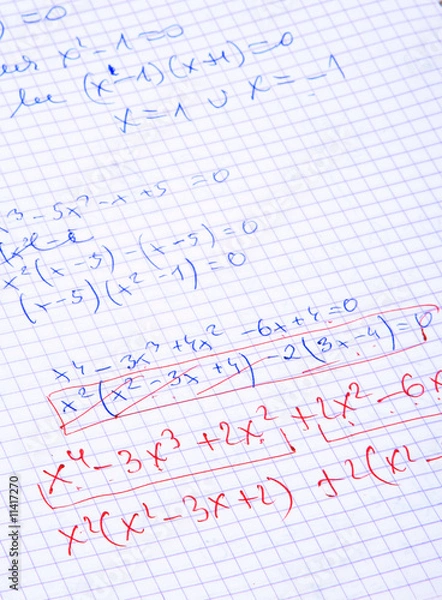 ) = 0
x² - 1 = 0
(x - 1)(x + 1) = 0
x = 1 ∪ x = -1
x³ - 5x² - x + 5 = 0
x²(x - 5) - (x - 5) = 0
(x - 5)(x² - 1) = 0
x⁴ - 3x³ + 4x² - 6x + 4 = 0
x²(x² - 3x + 4) - 2(3x - 4) = 0
x⁴ - 3x³ + 2x² + 2x² - 6x
x²(x² - 3x + 2) + 2(x² -
Adobe Stock | #11417270